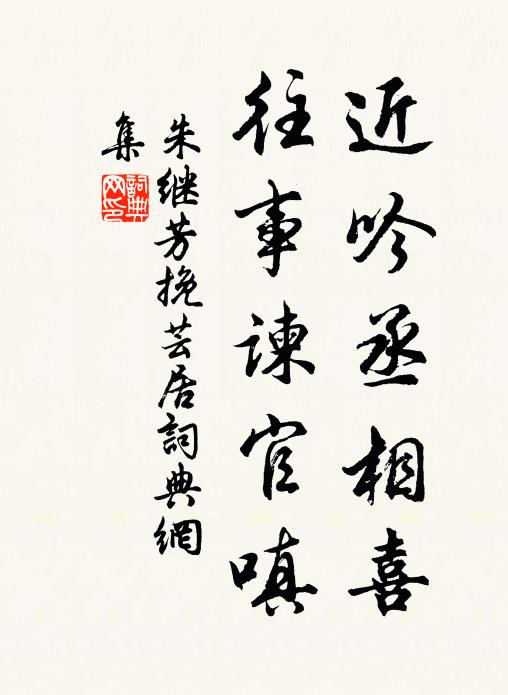 近吟丞相喜
往事諫官嗔
朱继芳挽芸居詞典網
集
詞典网印